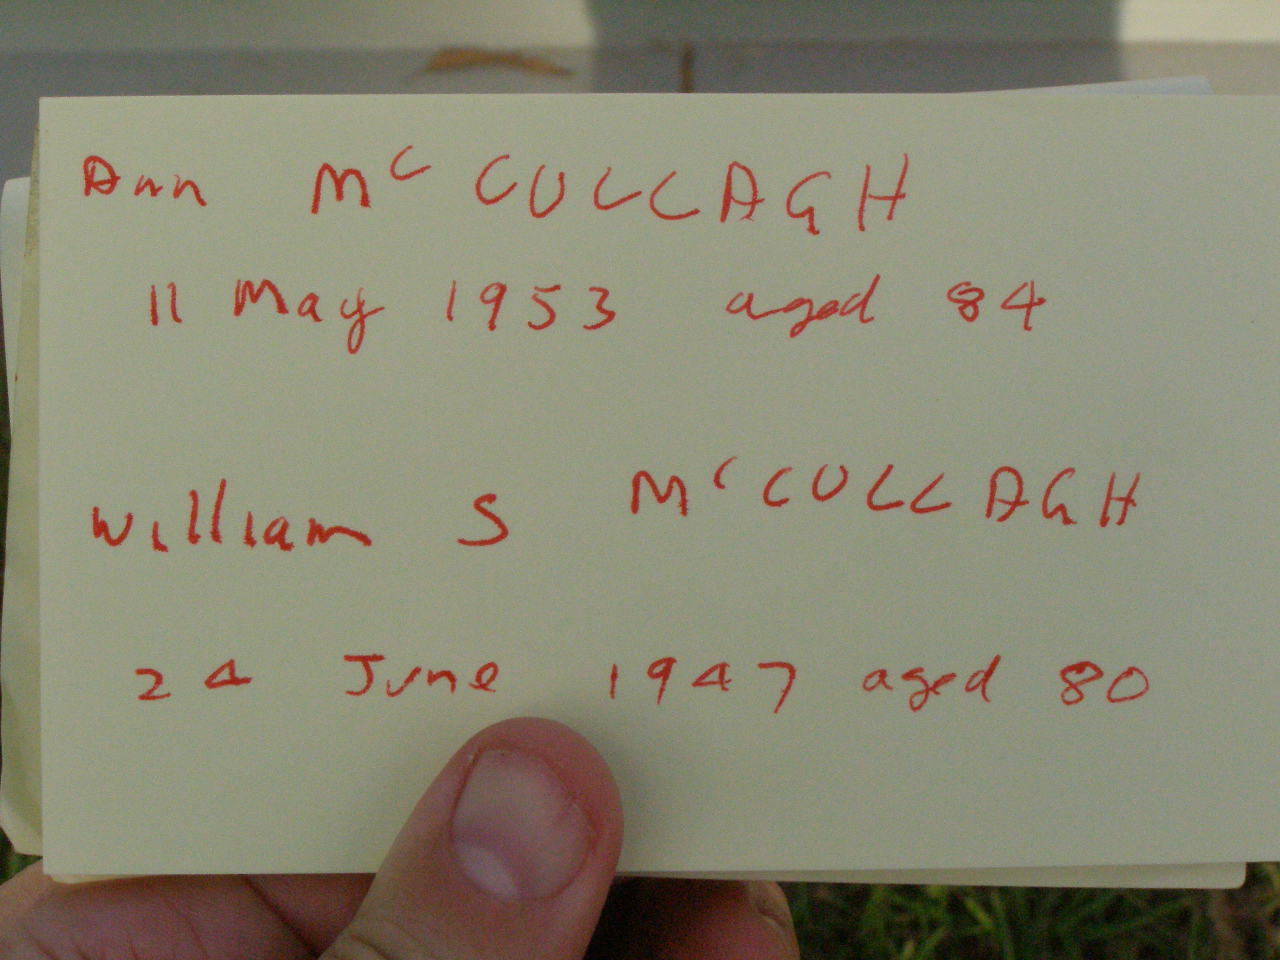 Ann McCULLAGH
11 May 1953 aged 84
William S McCULLAGH
24 June 1947 aged 80